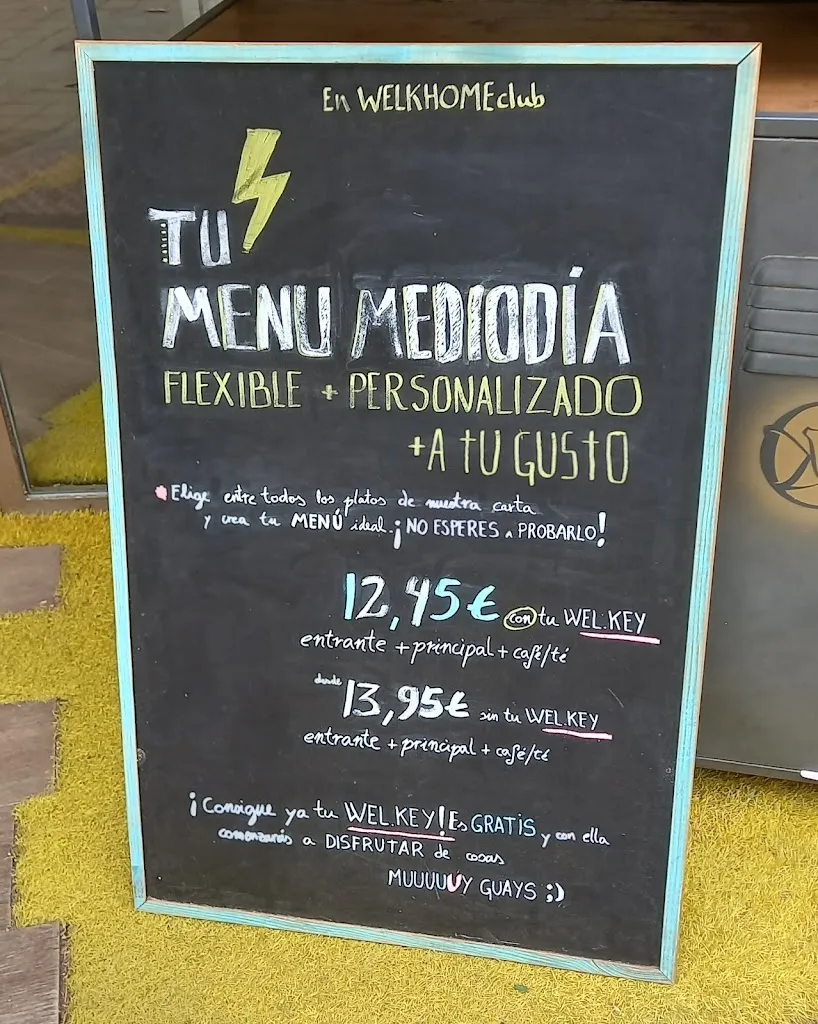 En WELKHOMEclub
TU
MENU MEDIODÍA
FLEXIBLE + PERSONALIZADO
+A TU GUSTO
Elige entre todos los platos de nuestra carta
y crea tu MENÚ ideal. ¡NO ESPERES a PROBARLO!
12,45€ con tu WEL.KEY
entrante + principal + café/té
desde 13,95€ sin tu WEL.KEY
entrante + principal + café/té
¡Consigue ya tu WEL.KEY! Es GRATIS y con ella
comenzarás a DISFRUTAR de cosas
MUUUUUY GUAYS ;)